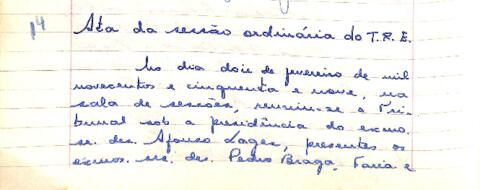 14
Ata da sessão ordinária do T.R.E.
No dia dois de fevereiro de mil
novecentos e cinquenta e nove, na
sala de sessões, reuniu-se o Tri-
bunal sob a presidência do exmo.
sr. des. Afonso Lages, presentes os
exmos. srs. des. Pedro Braga, Faria e